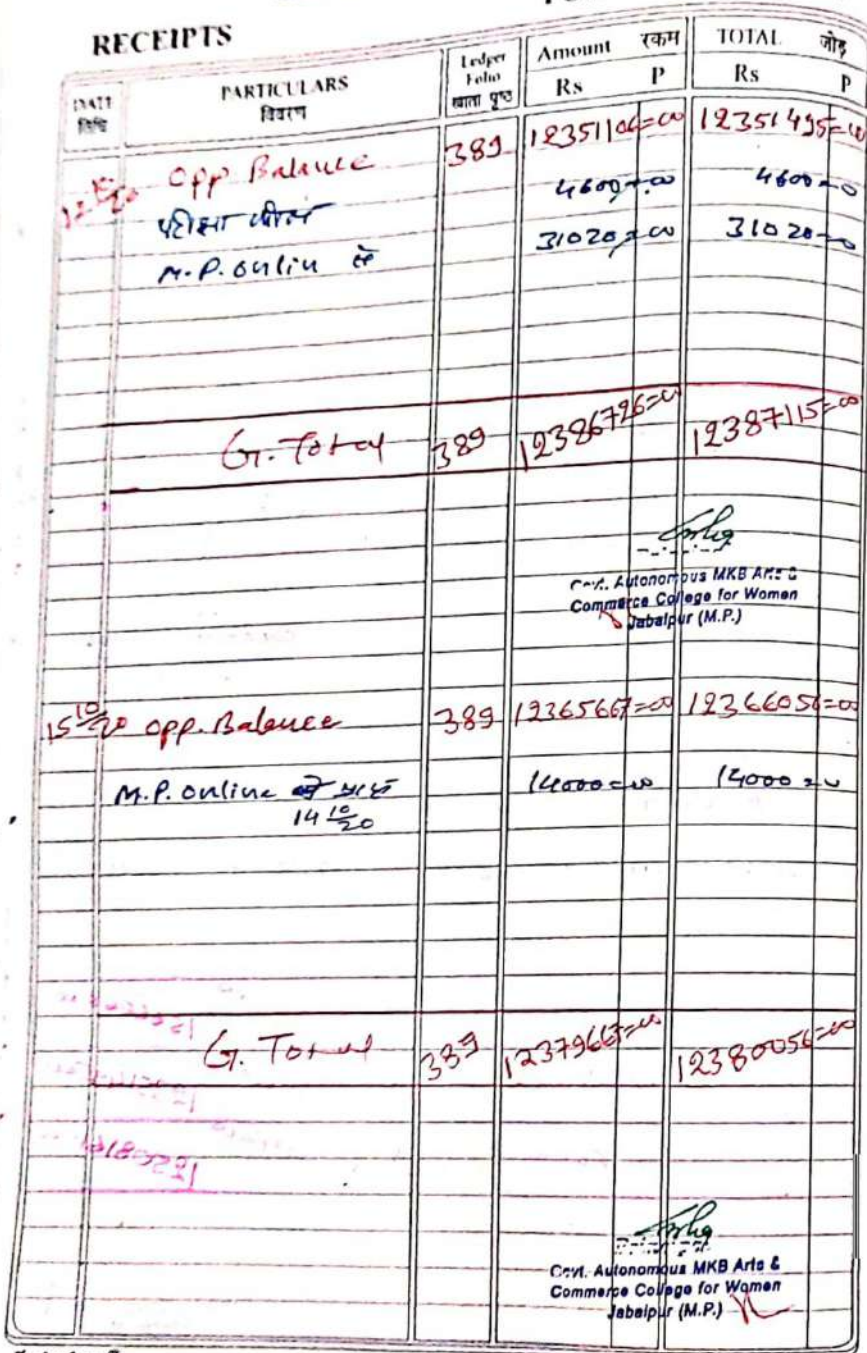 RECEIPTS
DATE तिथि PARTICULARS विवरण Ledger Folio खाता पृष्ठ Amount रकम Rs P TOTAL जोड़ Rs P
12 10/20 Opp Balance 389 12351106=00 12351495=00
परीक्षा 4600=00 4600=0
M.P. onlin से 31020=00 31020=0
G. Total 389 12386726=00 12387115=00
Govt. Autonomous MKB Arts &
Commerce College for Women
Jabalpur (M.P.)
15 10/20 opp. Balance 389 12365667=00 12366056=00
M.P. online से प्राप्त 14000=00 14000=0
14 10/20
G. Total 389 12379667=00 12380056=00
Govt. Autonomous MKB Arts &
Commerce College for Women
Jabalpur (M.P.)